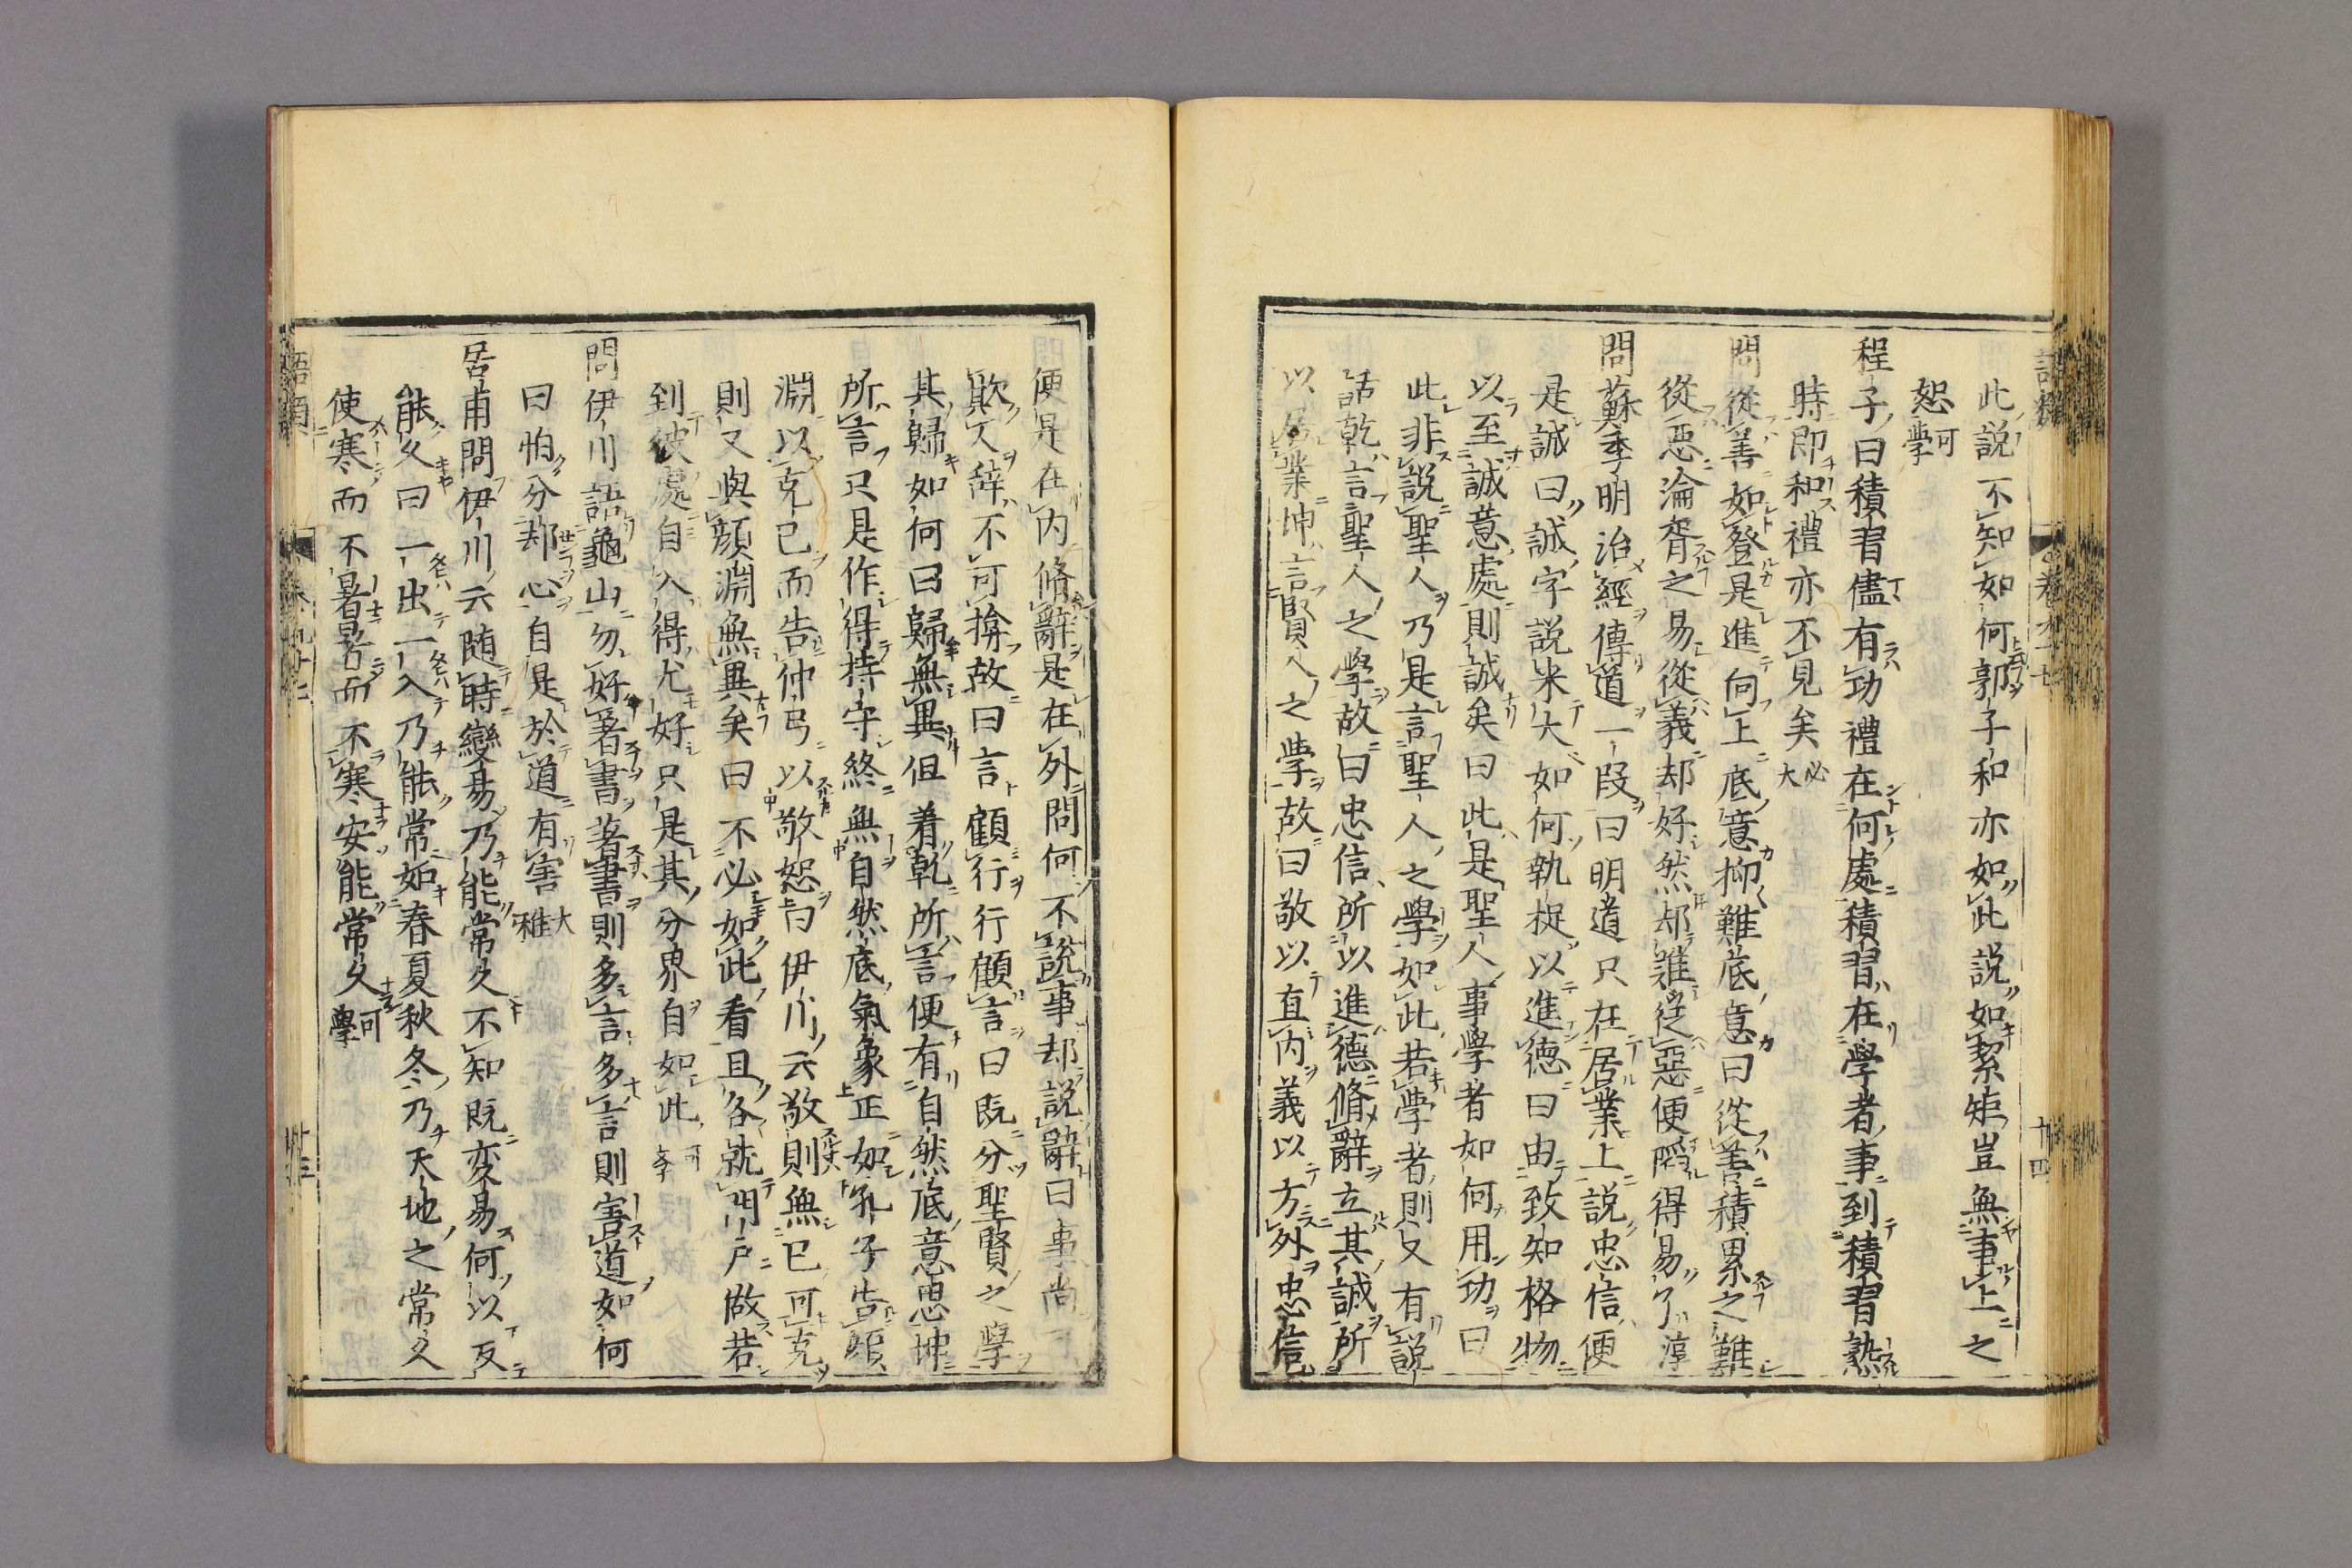 此説不知如何郭子和亦如此説如絜矩豈無事上之
恕可學
程子曰積習儘有功禮在何處積習在學者事到積習熟
時即和禮亦不見矣必大
問從善如登是進向上底意抑難底意曰從善積累之難
從惡淪胥之易從義却好然却難從惡便陷得易了淳
問蘇季明治經傳道一段曰明道只在居業上説忠信便
是誠曰誠字説来大如何執捉以進徳曰由致知格物
以至誠意處則誠矣曰此是聖人事學者如何用功曰
此非説聖人乃是言聖人之學如此若學者則又有説
話乾言聖人之學故曰忠信所以進徳脩辭立其誠所
以居業坤言賢人之學故曰敬以直内義以方外忠信
便是在内脩辭是在外問何不説事却説辭曰事尚可
欺人辭不可揜故曰言顧行行顧言曰既分聖賢之學
其歸如何曰歸無異但着乾所言便有自然底意思坤
所言只是作得持守終無自然底氣象正如孔子告顔
淵以克己而告仲弓以敬恕曰伊川云敬則無己可克
則又與顔淵無異矣曰不必如此看且各就門戸做若
到彼處自入得尤好只是其分界自如此可学
問伊川語龜山勿好著書著書則多言多言則害道如何
曰怕分却心自是於道有害大雅
呂甫問伊川云随時變易乃能常久不知既変易何以反
能久曰一出一入乃能常如春夏秋冬乃天地之常久
使寒而不暑暑而不寒安能常久可學
語類
十三
十四